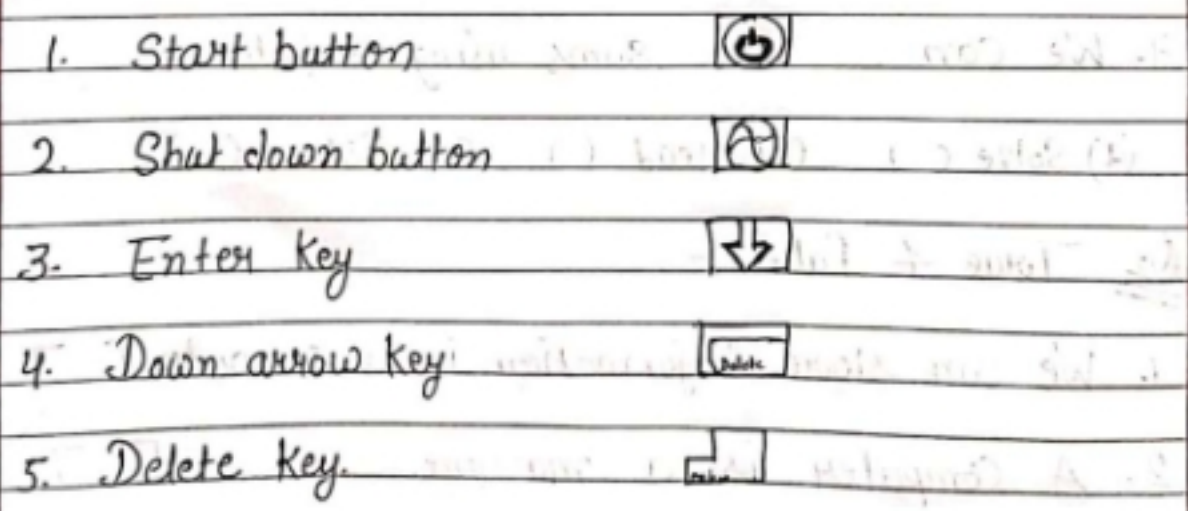 1. Start button
2. Shut down button
3. Enter key
4. Down arrow key Delete
5. Delete key.